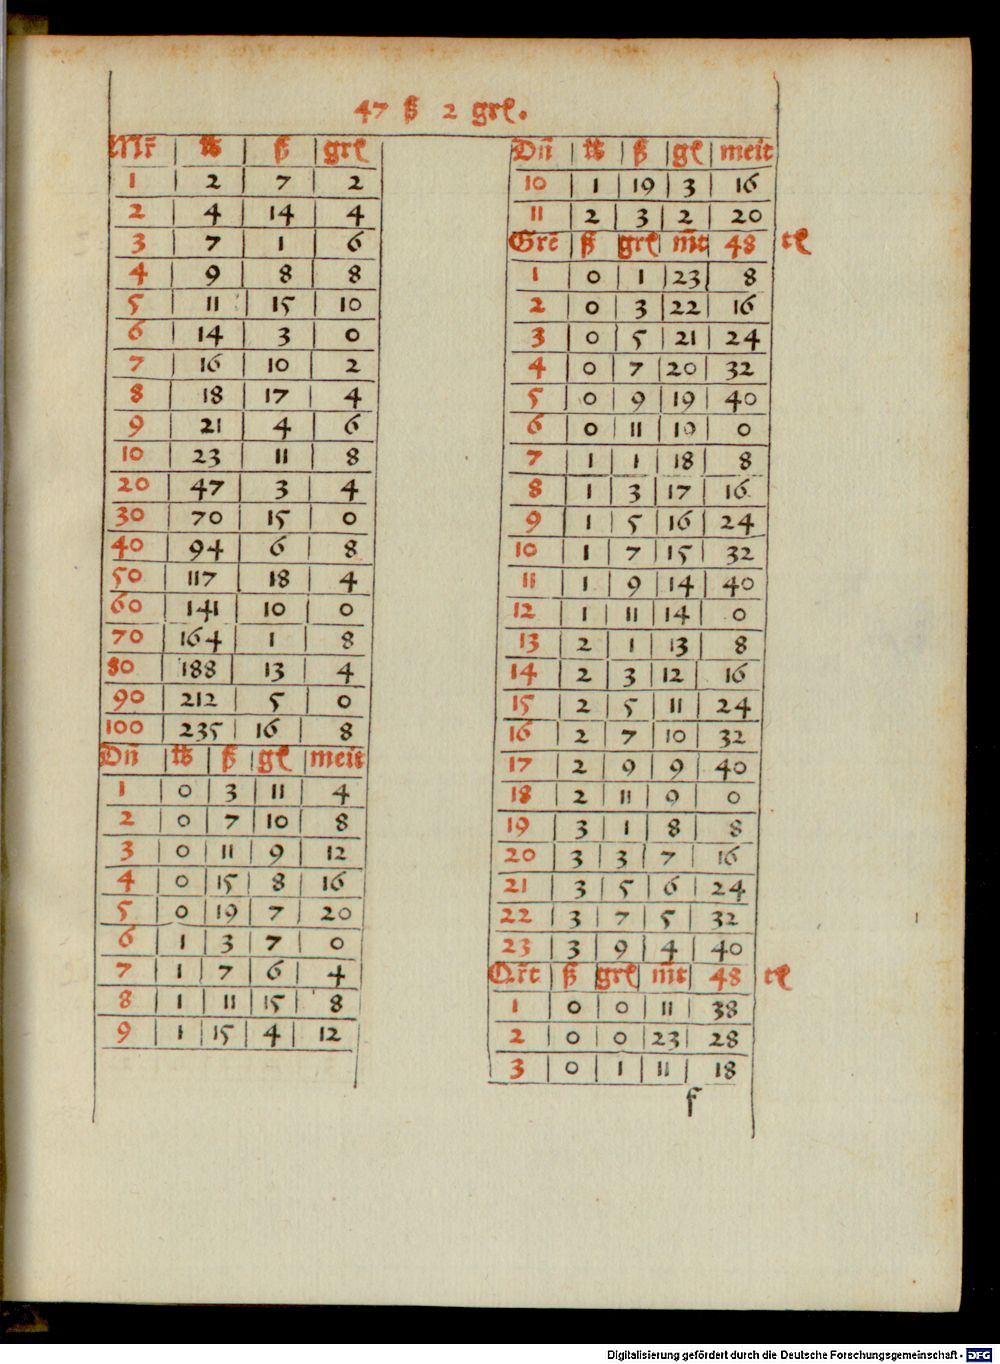 47 ß 2 grl.
Mr̄ | lb | ß | grl
1 | 2 | 7 | 2
2 | 4 | 14 | 4
3 | 7 | 1 | 6
4 | 9 | 8 | 8
5 | 11 | 15 | 10
6 | 14 | 3 | 0
7 | 16 | 10 | 2
8 | 18 | 17 | 4
9 | 21 | 4 | 6
10 | 23 | 11 | 8
20 | 47 | 3 | 4
30 | 70 | 15 | 0
40 | 94 | 6 | 8
50 | 117 | 18 | 4
60 | 141 | 10 | 0
70 | 164 | 1 | 8
80 | 188 | 13 | 4
90 | 212 | 5 | 0
100 | 235 | 16 | 8
Dn̄ | lb | ß | gl | meit
1 | 0 | 3 | 11 | 4
2 | 0 | 7 | 10 | 8
3 | 0 | 11 | 9 | 12
4 | 0 | 15 | 8 | 16
5 | 0 | 19 | 7 | 20
6 | 1 | 3 | 7 | 0
7 | 1 | 7 | 6 | 4
8 | 1 | 11 | 15 | 8
9 | 1 | 15 | 4 | 12
Dn̄ | lb | ß | gl | meit
10 | 1 | 19 | 3 | 16
11 | 2 | 3 | 2 | 20
Grē | ß | grl | m̄t | 48 tl
1 | 0 | 1 | 23 | 8
2 | 0 | 3 | 22 | 16
3 | 0 | 5 | 21 | 24
4 | 0 | 7 | 20 | 32
5 | 0 | 9 | 19 | 40
6 | 0 | 11 | 19 | 0
7 | 1 | 1 | 18 | 8
8 | 1 | 3 | 17 | 16
9 | 1 | 5 | 16 | 24
10 | 1 | 7 | 15 | 32
11 | 1 | 9 | 14 | 40
12 | 1 | 11 | 14 | 0
13 | 2 | 1 | 13 | 8
14 | 2 | 3 | 12 | 16
15 | 2 | 5 | 11 | 24
16 | 2 | 7 | 10 | 32
17 | 2 | 9 | 9 | 40
18 | 2 | 11 | 9 | 0
19 | 3 | 1 | 8 | 8
20 | 3 | 3 | 7 | 16
21 | 3 | 5 | 6 | 24
22 | 3 | 7 | 5 | 32
23 | 3 | 9 | 4 | 40
Qr̄t | ß | grl | m̄t | 48 tl
1 | 0 | 0 | 11 | 38
2 | 0 | 0 | 23 | 28
3 | 0 | 1 | 11 | 18
f
Digitalisierung gefördert durch die Deutsche Forschungsgemeinschaft - DFG